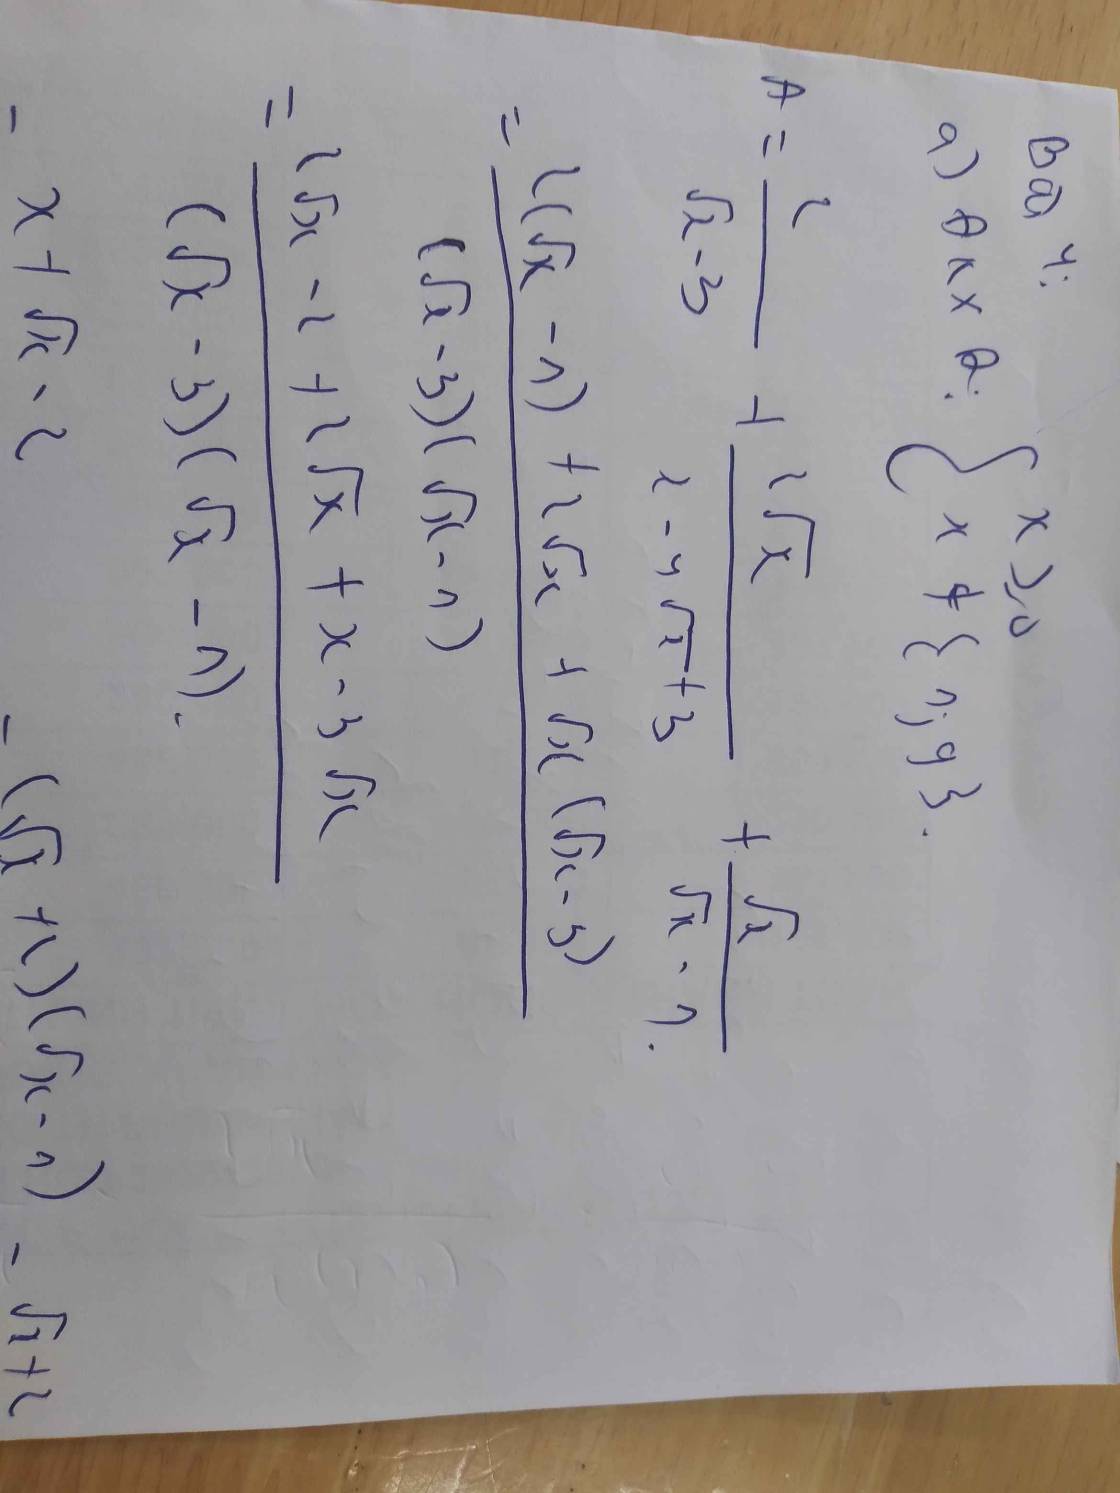 Bài 4:
a) ĐKXĐ: { x ≥ 0
x ≠ {1; 9}.
A = 2/(√x - 3) + 2√x/(x - 4√x + 3) + √x/(√x - 1).
= (2(√x - 1) + 2√x + √x(√x - 3))/((√x - 3)(√x - 1))
= (2√x - 2 + 2√x + x - 3√x)/((√x - 3)(√x - 1)).
= x + √x - 2 = (√x + 2)(√x - 1) = √x + 2